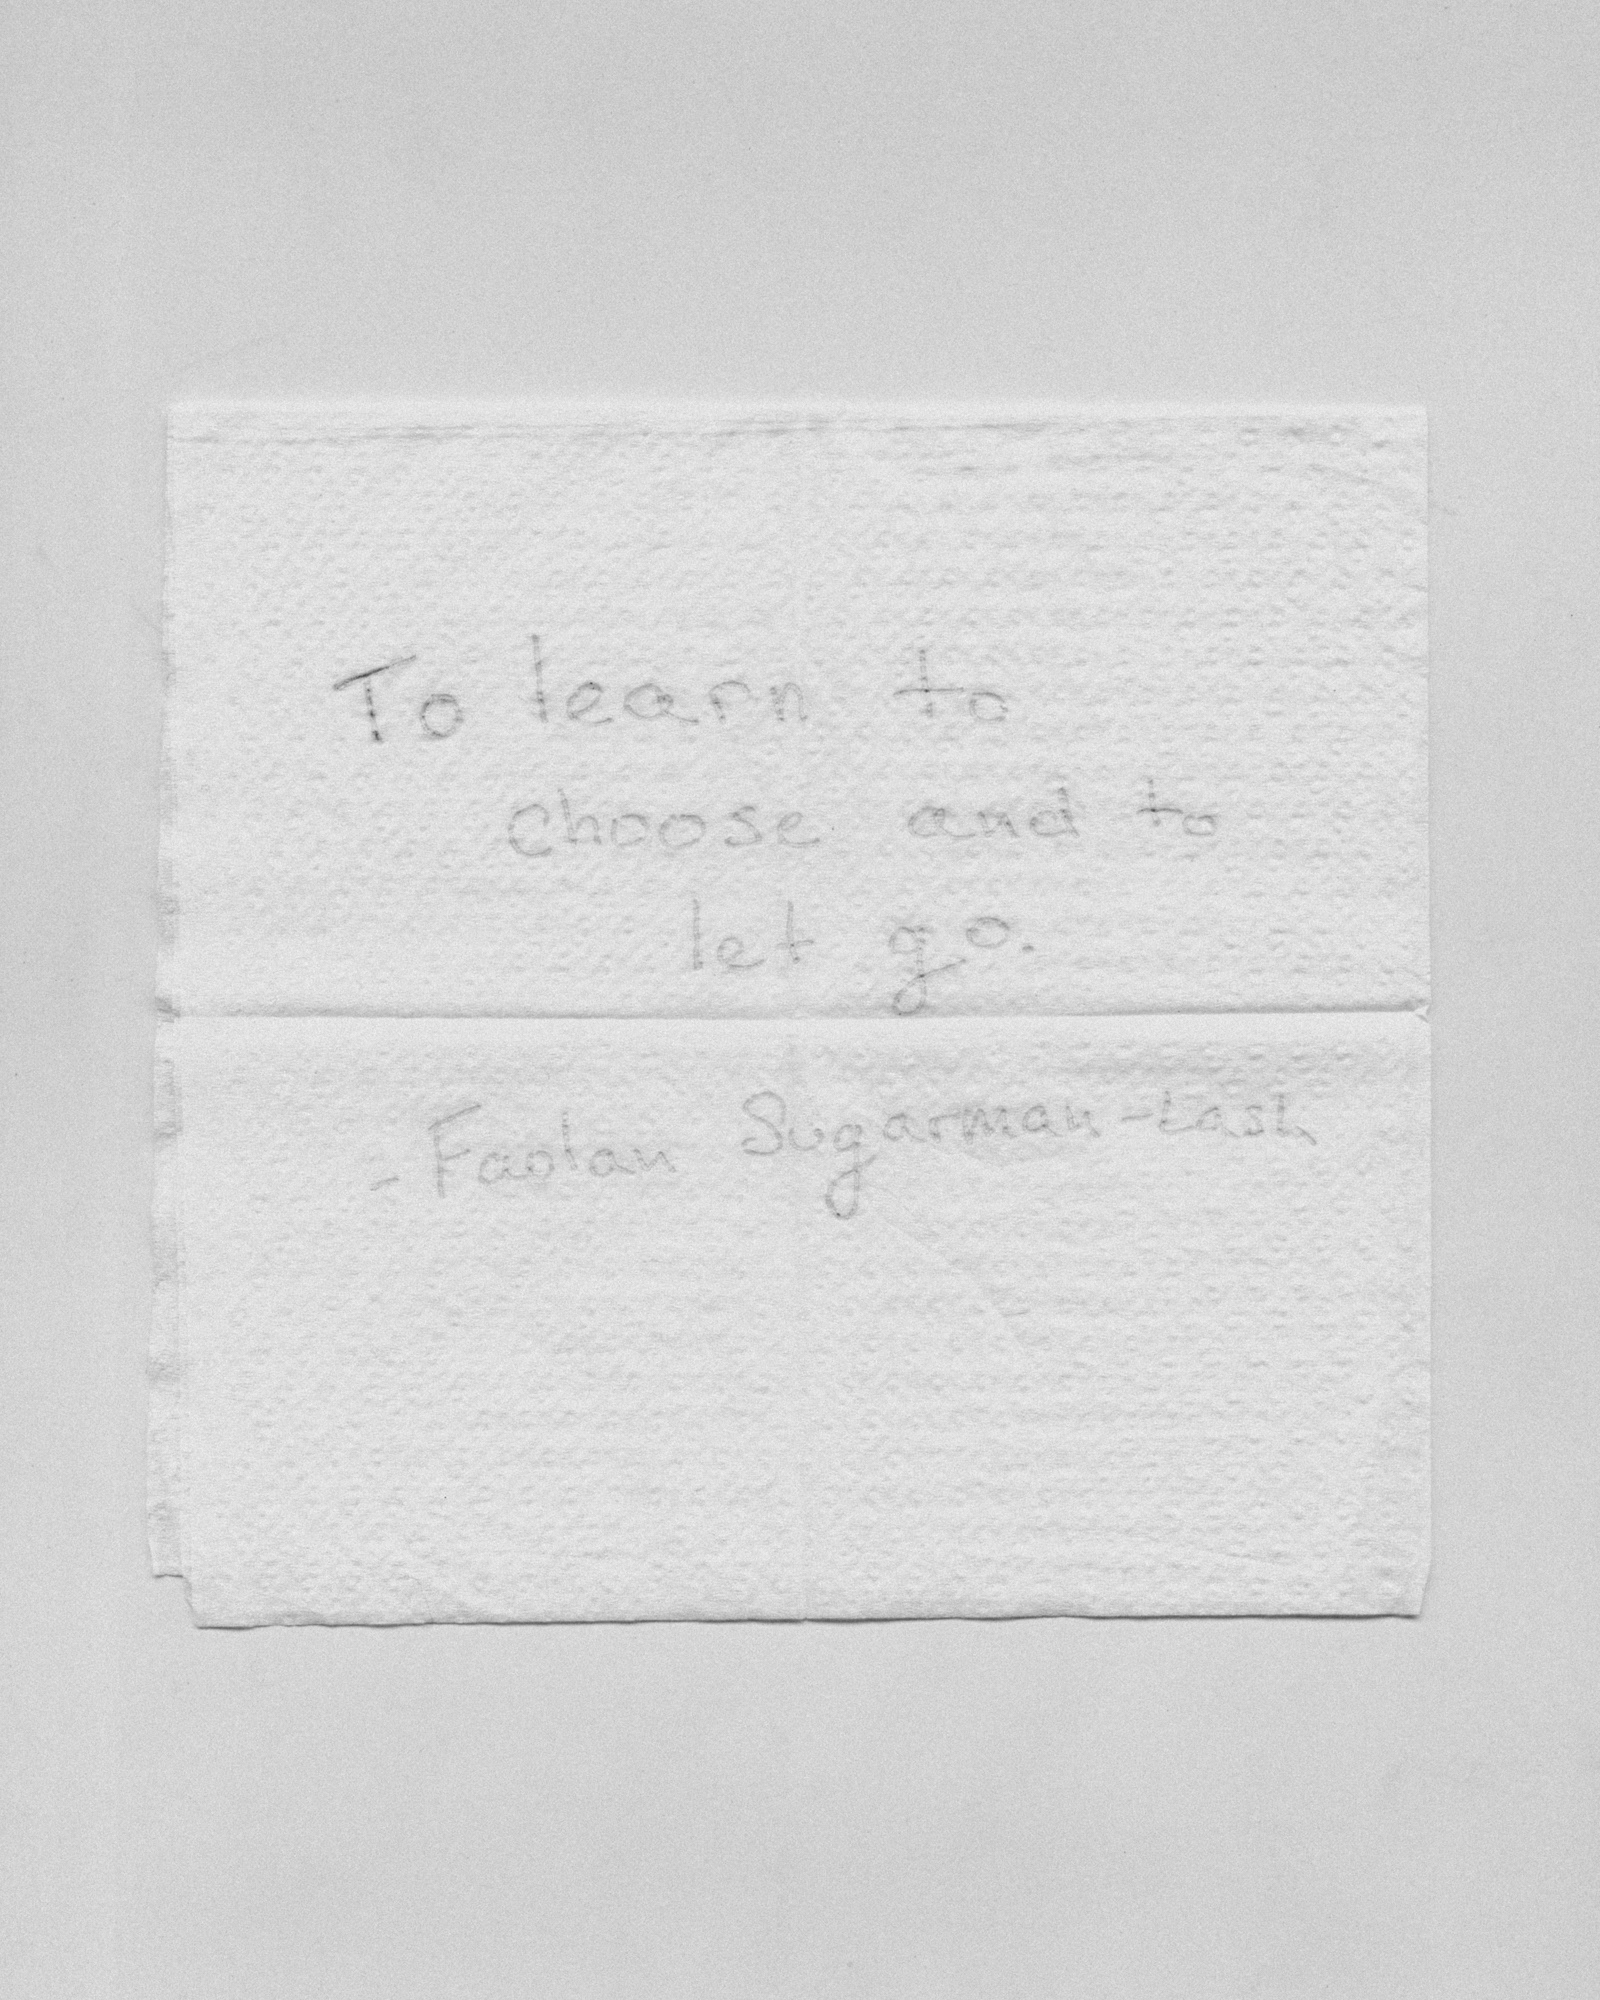 To learn to
choose and to
let go.
- Faolan Sugarman-Lash